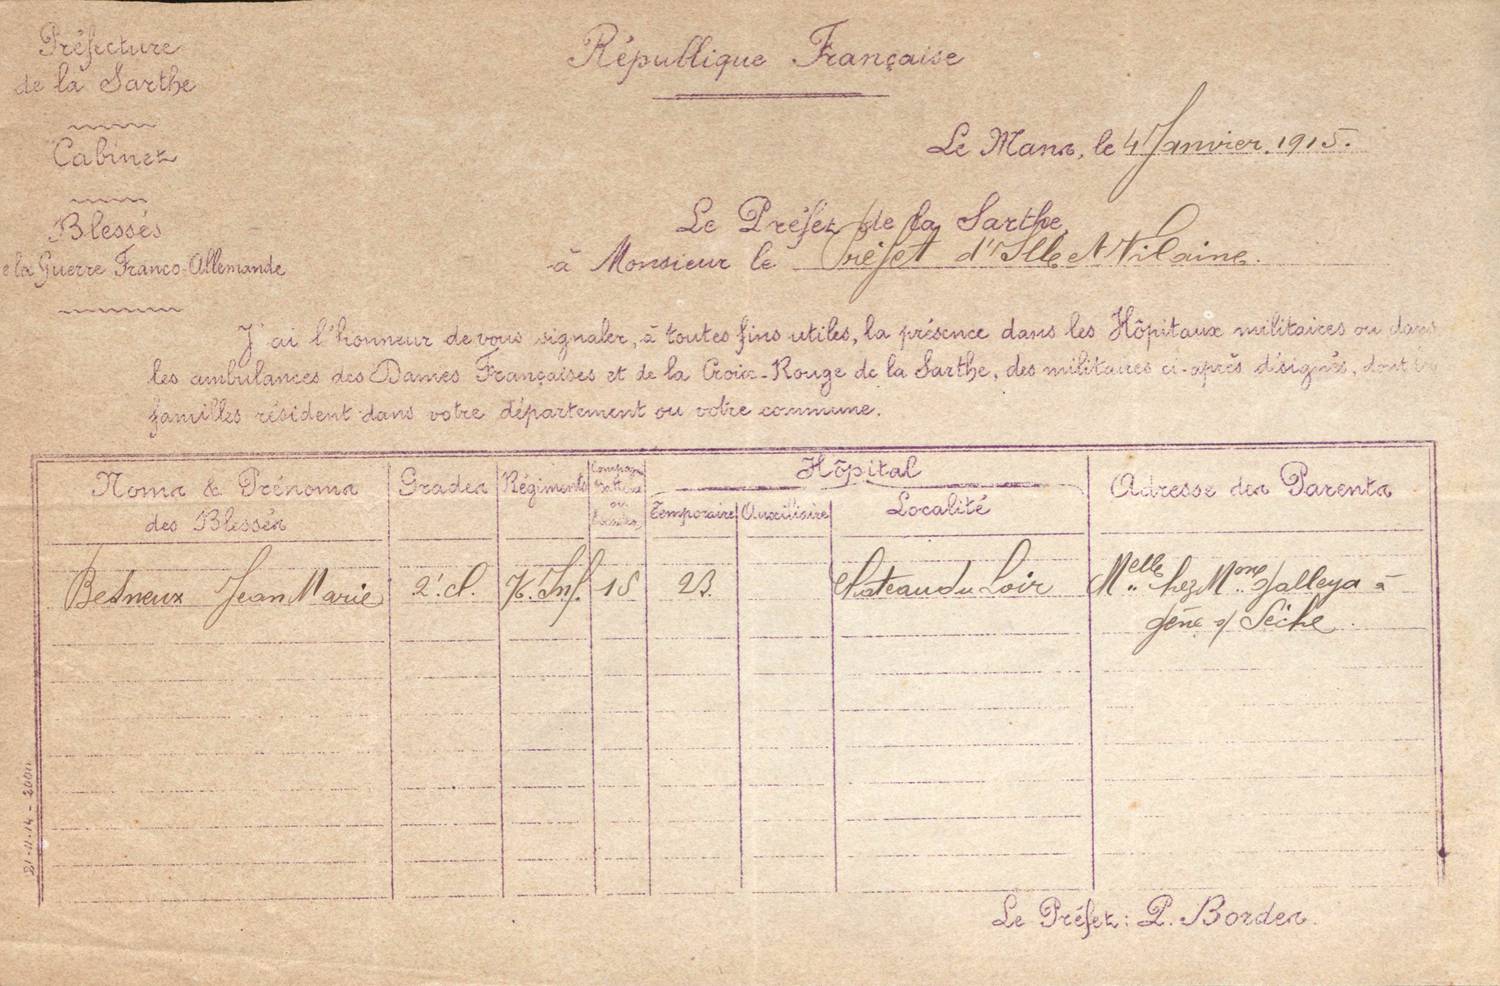 Préfecture
de la Sarthe
Cabinet
Blessés
e la Guerre Franco-Allemande
République Française
Le Mans, le 4 Janvier 1915.
Le Préfet de la Sarthe,
à Monsieur le Préfet d'Ille et Vilaine.
J'ai l'honneur de vous signaler, à toutes fins utiles, la présence dans les Hôpitaux militaires ou dans
les ambulances des Dames Françaises et de la Croix-Rouge de la Sarthe, des militaires ci-après désignés, dont les
familles résident dans votre département ou votre commune.
Noms & Prénoms des Blessés
Grades
Régiments
Hôpital
Temporaire
Auxiliaire
Localité
Adresse des Parents
Besneux Jean Marie 2e. cl. Inf. 18 23 Chateau du Loir Melle chez Mme à
s/ Seiche
Le Préfet: P. Bordes.
21-11-14 - 2000